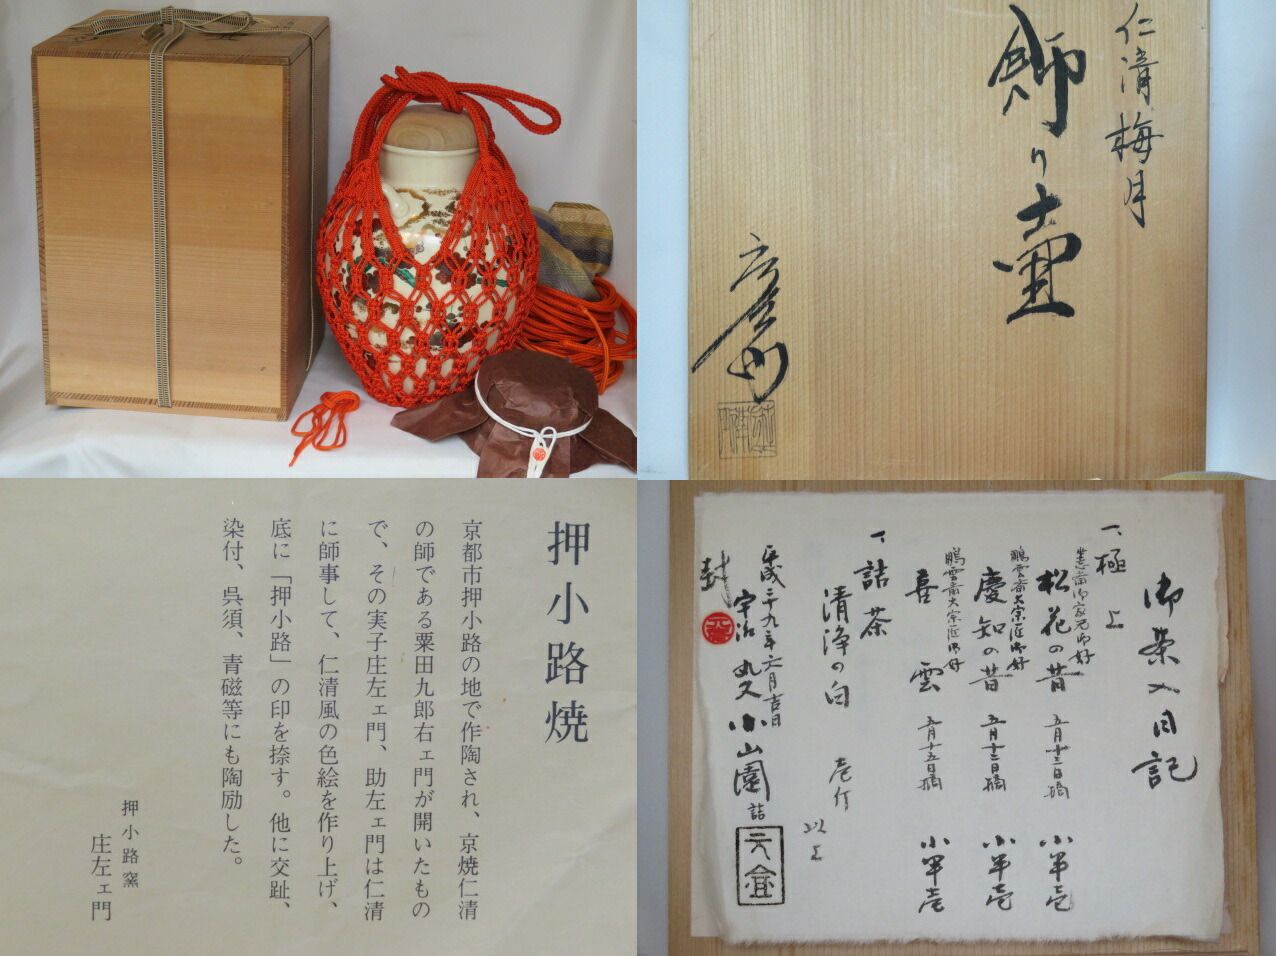 仁清梅月
飾り壷
押小路焼
京都市押小路の地で作陶され、京焼仁清
の師である粟田九郎右ェ門が開いたもの
で、その実子庄左ェ門、助左ェ門は仁清
に師事して、仁清風の色絵を作り上げ、
底に「押小路」の印を捺す。他に交趾、
染付、呉須、青磁等にも陶励した。
押小路窯
庄左ェ門
御茶入日記
一、極上
坐忘斎御家元御好
松花の昔 五月十三日摘 小半壱
鵬雲斎大宗匠御好
慶知の昔 五月十二日摘 小半壱
鵬雲斎大宗匠御好
喜雲 五月十五日摘 小半壱
一、詰茶
清浄の白 壱斤
以上
平成二十九年六月吉日
宇治 丸久小山園 詰
封